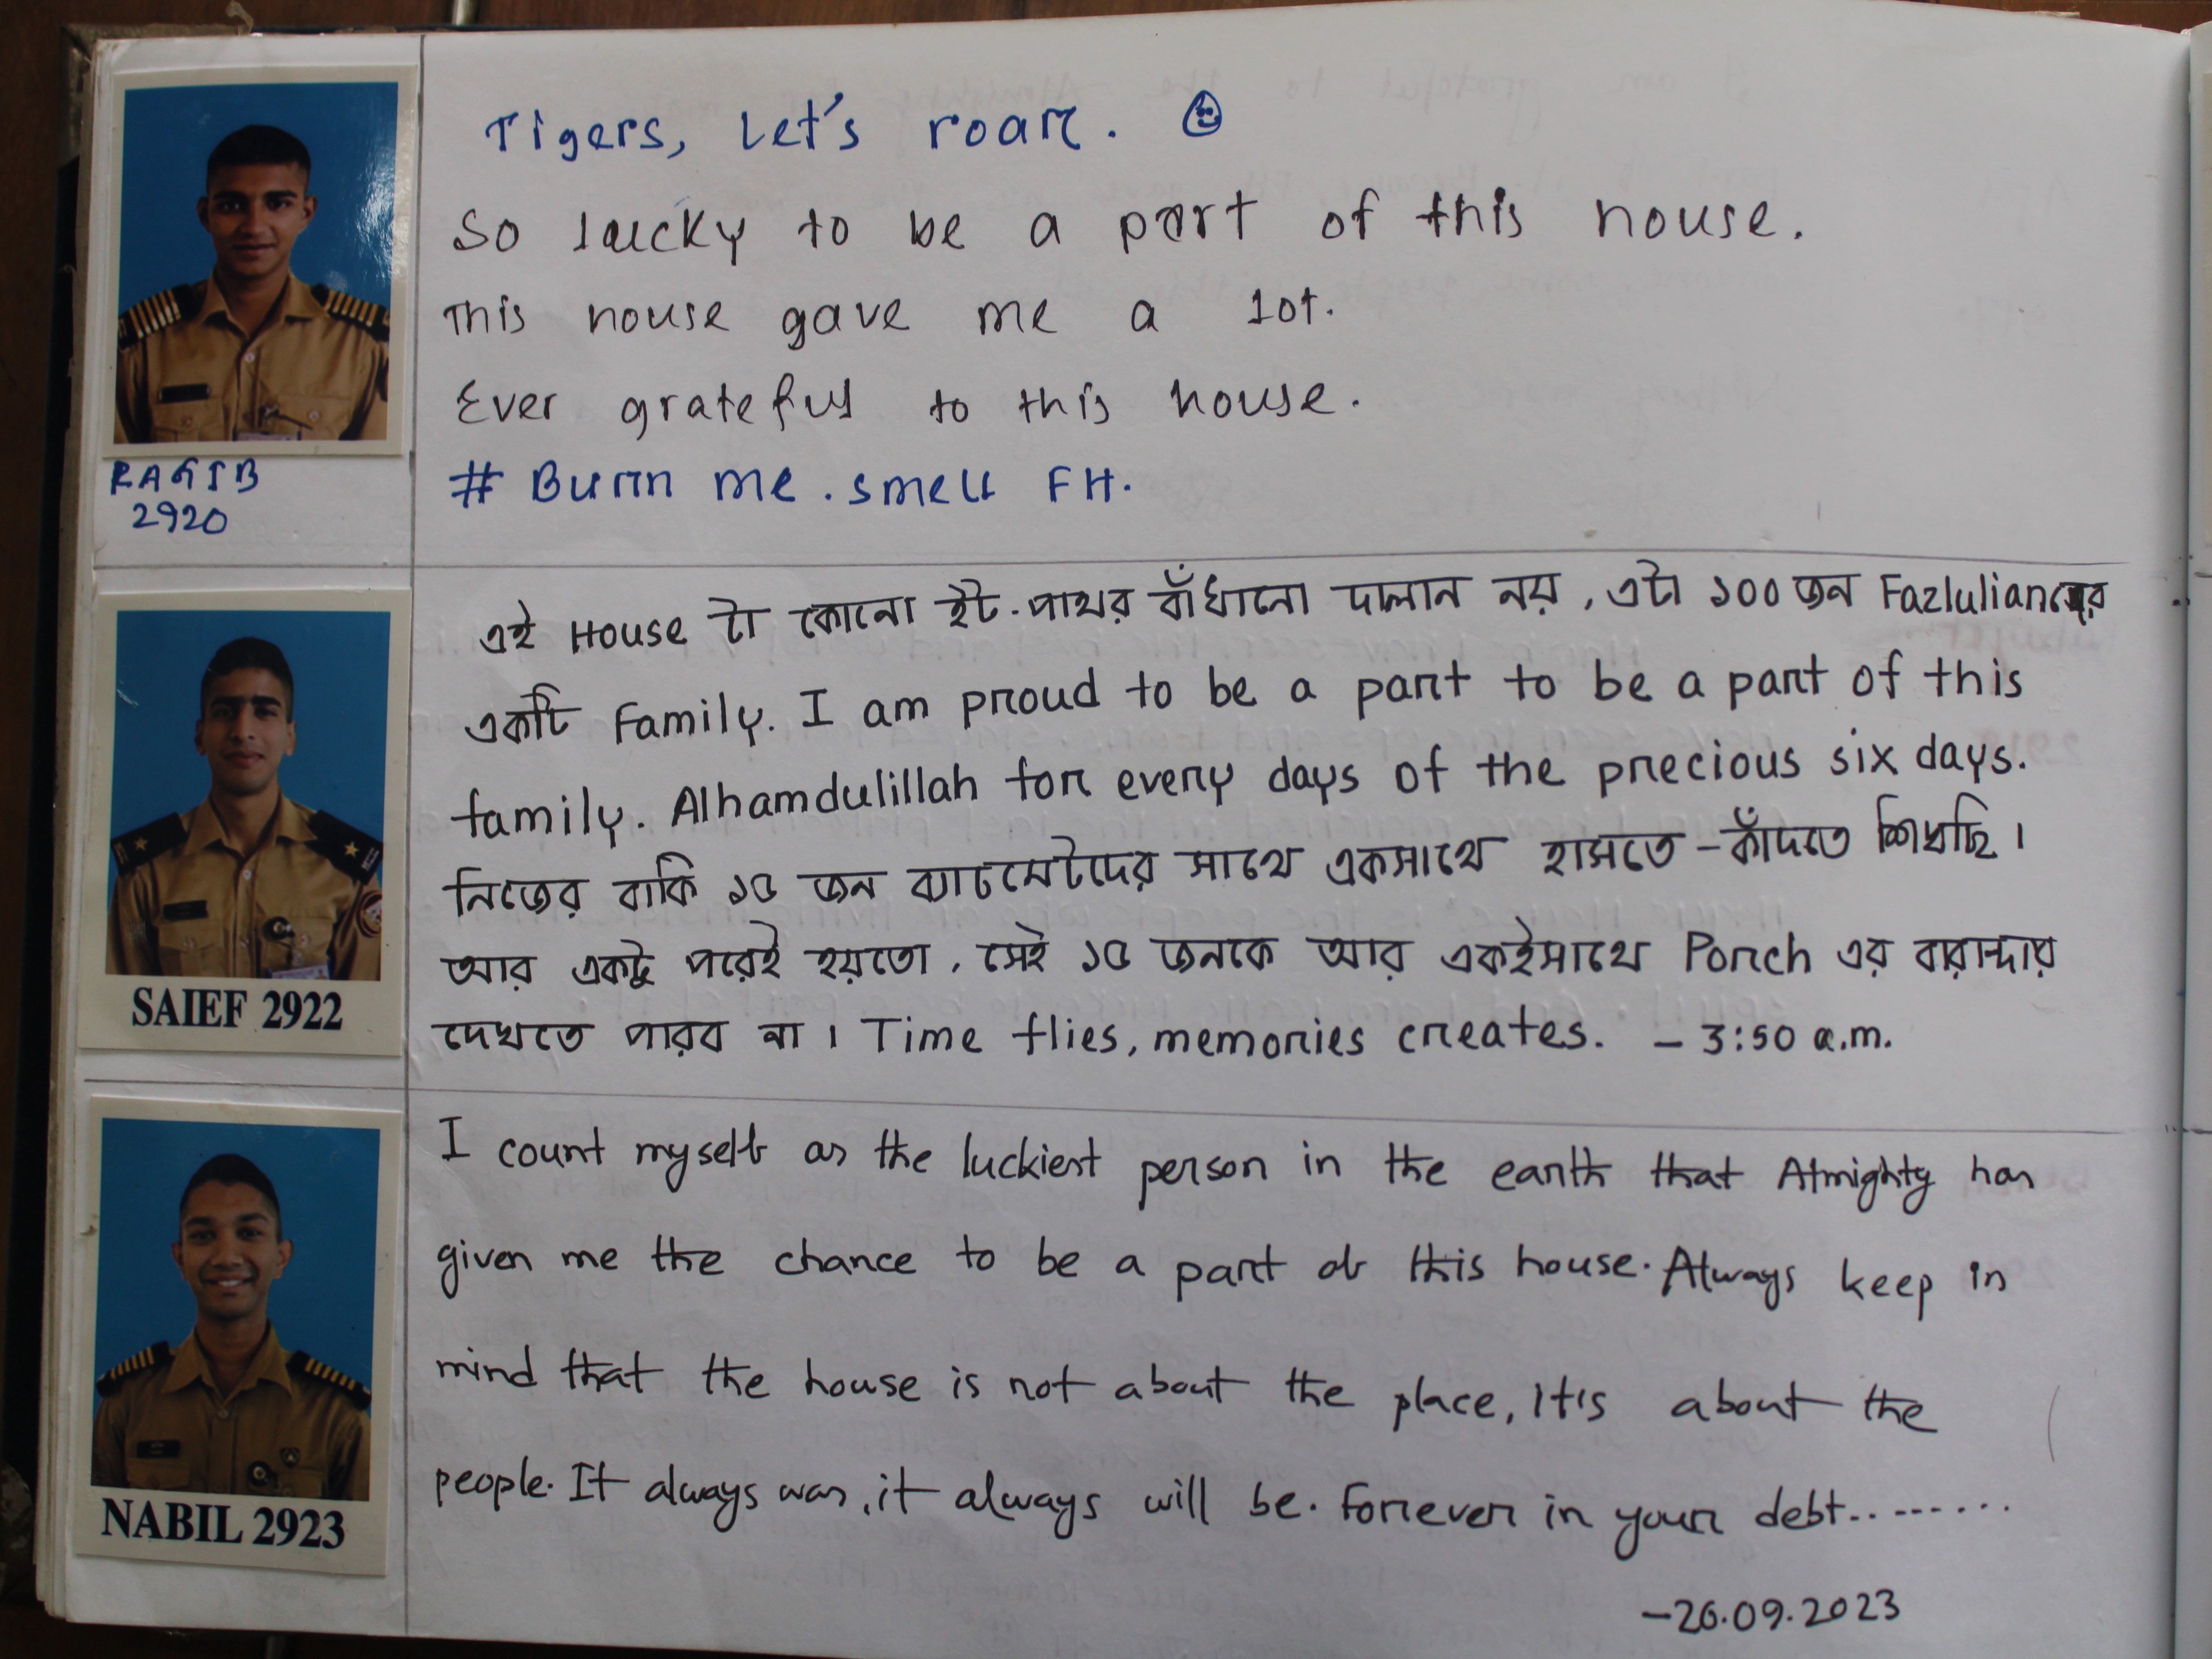 Tigers, Let's roar. ☺
So lucky to be a part of this house.
This house gave me a lot.
Ever grateful to this house.
# Burn me. smell FH.
RAGIB
2920
এই House টা কোনো ইট-পাথর বাঁধানো দালান নয়, এটা ১০০ জন Fazlulianদের
একটি Family. I am proud to be a part to be a part of this
family. Alhamdulillah for every days of the precious six days.
নিজের বাকি ১৫ জন ব্যাচমেটদের সাথে একসাথে হাসতে-কাঁদতে শিখছি।
আর একটু পরেই হয়তো, সেই ১৫ জনকে আর একইসাথে Porch এর বারান্দায়
দেখতে পারব না। Time flies, memories creates. - 3:50 a.m.
SAIEF 2922
I count myself as the luckiest person in the earth that Almighty has
given me the chance to be a part of this house. Always keep in
mind that the house is not about the place, it's about the
people. It always was, it always will be. Forever in your debt.........
-26.09.2023
NABIL 2923